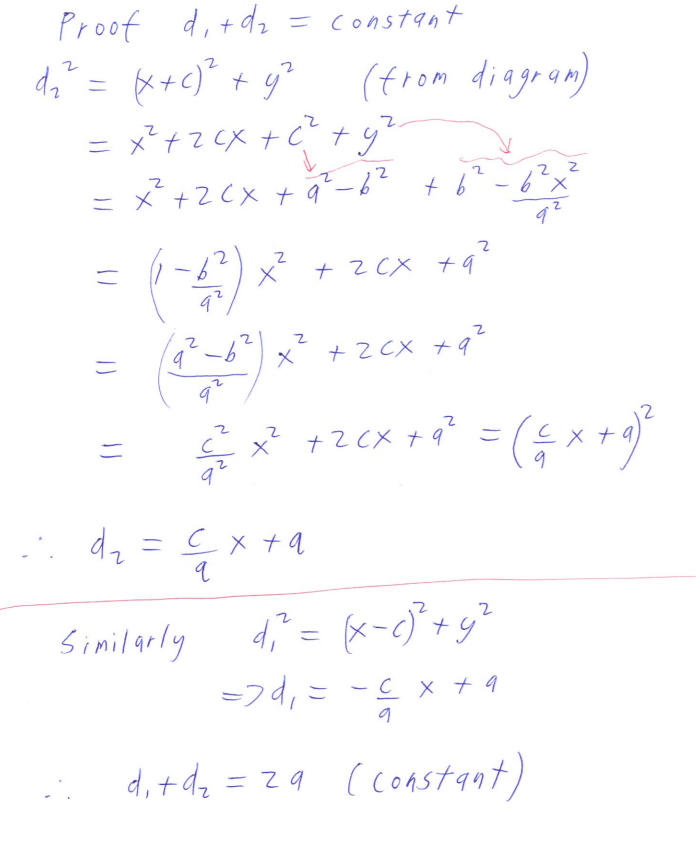 Proof d₁+d₂ = constant
d₂² = (x+c)² + y² (from diagram)
= x²+2cx+c²+y²
= x²+2cx+a²-b² + b² - b²x²/a²
= (1-b²/a²)x² + 2cx + a²
= ((a²-b²)/a²)x² + 2cx + a²
= c²/a² x² + 2cx + a² = (c/a x + a)²
∴ d₂ = c/a x + a
Similarly d₁² = (x-c)² + y²
=> d₁ = -c/a x + a
∴ d₁+d₂ = 2a (constant)